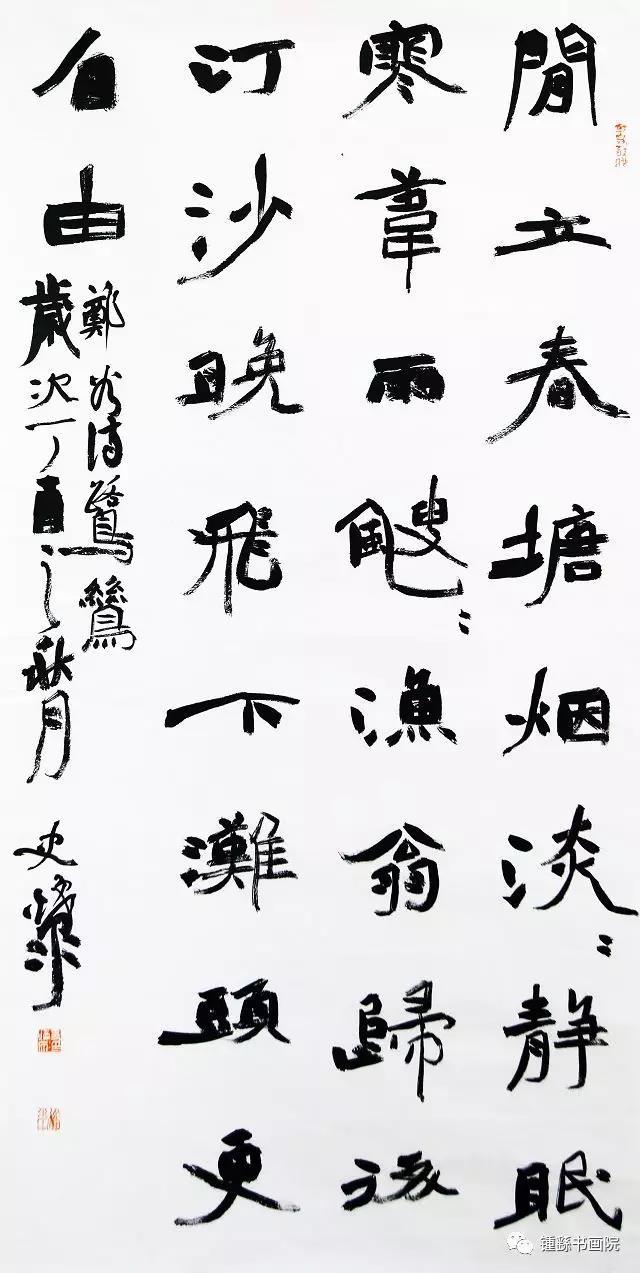 閒立春塘烟淡〻静眠
寒葦雨颼〻漁翁歸後
汀沙晚飛下灘頭更
自由
鄭谷诗鷺鷥
歲次丁酉之秋月 史
锺繇书画院